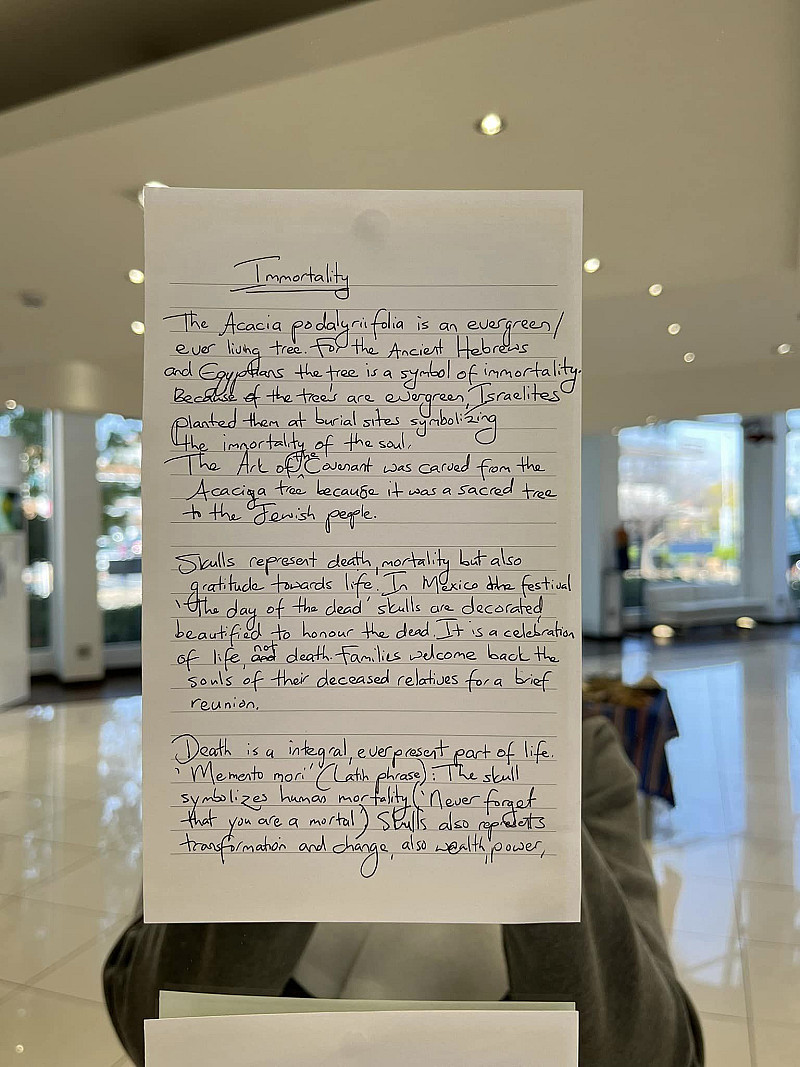 Immortality
The Acacia podalyriifolia is an evergreen/
ever living tree. For the Ancient Hebrews
and Egyptians the tree is a symbol of immortality.
Because of the trees are evergreen, Israelites
planted them at burial sites symbolizing
the immortality of the soul.
The Ark of the Covenant was carved from the
Acaciga tree because it was a sacred tree
to the Jewish people.
Skulls represent death, mortality but also
gratitude towards life. In Mexico the festival
'the day of the dead' skulls are decorated,
beautified to honour the dead. It is a celebration
of life, not death. Families welcome back the
souls of their deceased relatives for a brief
reunion.
Death is a integral, everpresent part of life.
'Memento mori' (Latin phrase): The skull
symbolizes human mortality ('Never forget
that you are a mortal') Skulls also represents
transformation and change, also wealth, power,